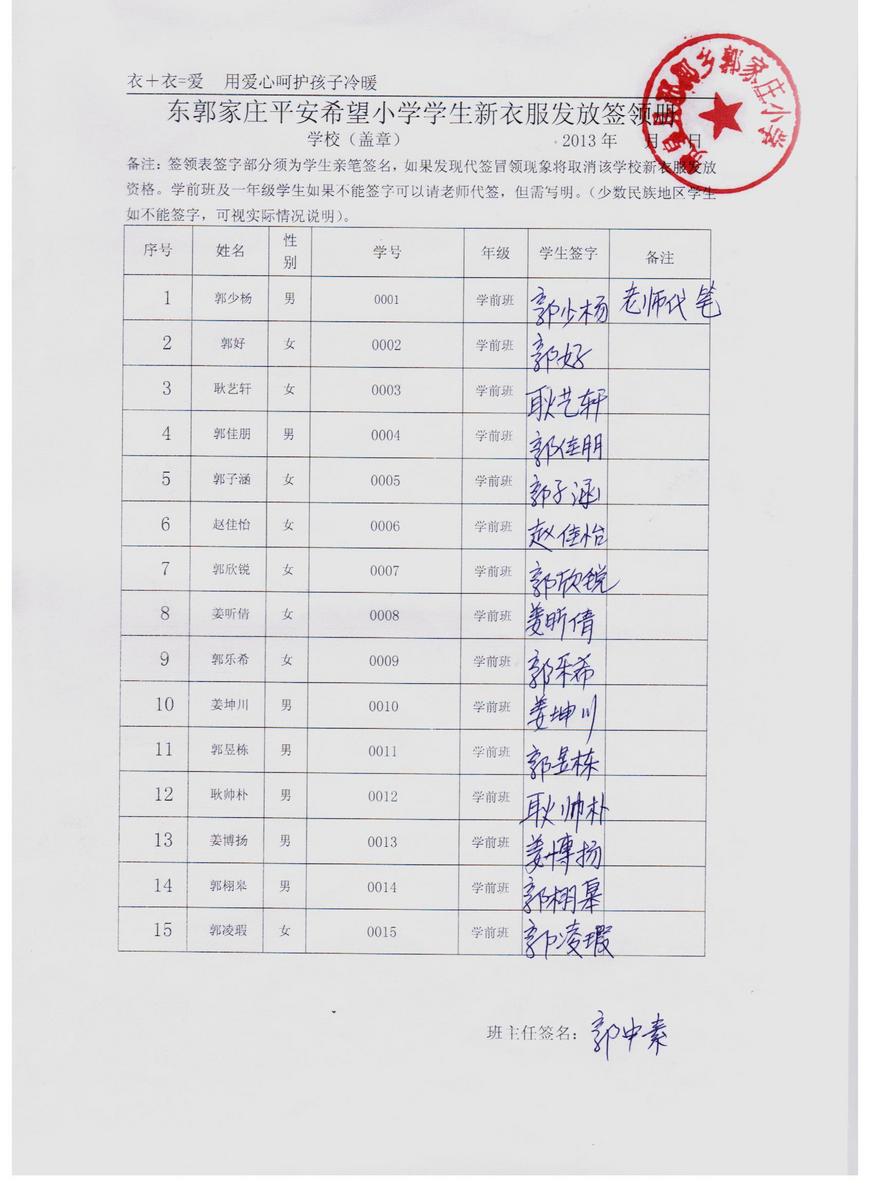 衣+衣=爱 用爱心呵护孩子冷暖
东郭家庄平安希望小学学生新衣服发放签领册
学校（盖章） 2013 年 月 日
备注：签领表签字部分须为学生亲笔签名，如果发现代签冒领现象将取消该学校新衣服发放
资格。学前班及一年级学生如果不能签字可以请老师代签，但需写明。（少数民族地区学生
如不能签字，可视实际情况说明）。
序号 姓名 性别 学号 年级 学生签字 备注
1 郭少杨 男 0001 学前班 郭少杨 老师代笔
2 郭好 女 0002 学前班 郭好
3 耿艺轩 女 0003 学前班 耿艺轩
4 郭佳朋 男 0004 学前班 郭佳朋
5 郭子涵 女 0005 学前班 郭子涵
6 赵佳怡 女 0006 学前班 赵佳怡
7 郭欣锐 女 0007 学前班 郭欣锐
8 姜听倩 女 0008 学前班 姜昕倩
9 郭乐希 女 0009 学前班 郭乐希
10 姜坤川 男 0010 学前班 姜坤川
11 郭昱栋 男 0011 学前班 郭昱栋
12 耿帅朴 男 0012 学前班 耿帅朴
13 姜博扬 男 0013 学前班 姜博扬
14 郭栩皋 男 0014 学前班 郭栩皋
15 郭凌瑕 女 0015 学前班 郭凌瑕
班主任签名： 郭中素
乡郭家庄小学